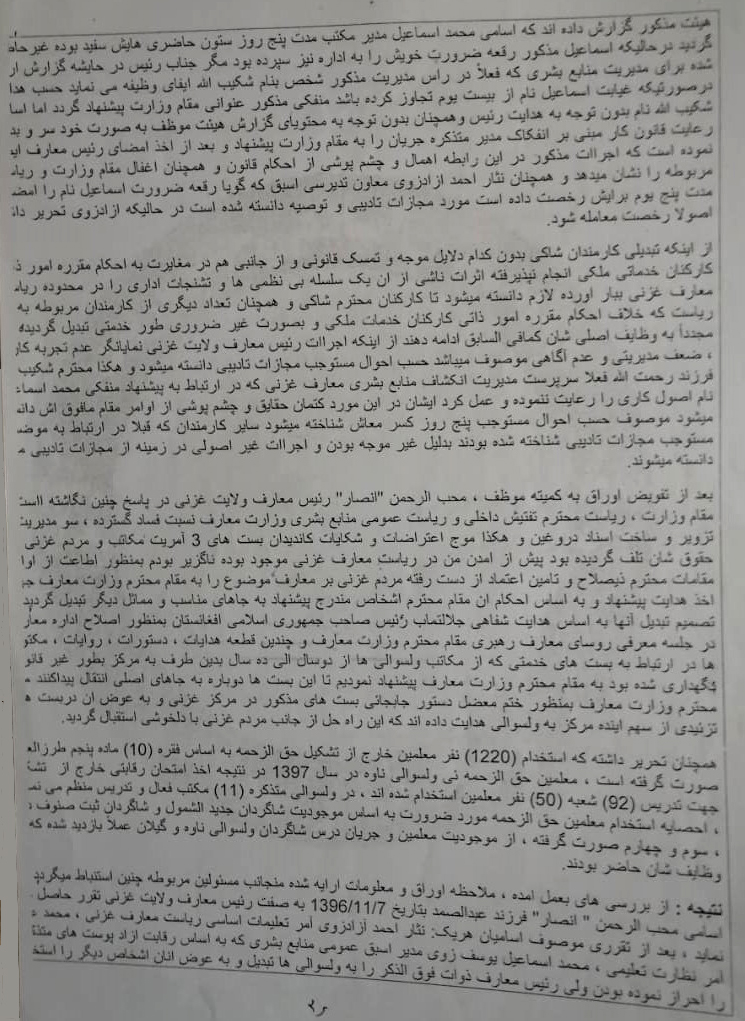 هیئت مذکور گزارش داده اند که اسامی محمد اسماعیل مدیر مکتب مدت پنج روز ستون حاضری هایش سفید بوده غیرحاضر
گردید درحالیکه اسماعیل مذکور رقعه ضرورت خویش را به اداره نیز سپرده بود مگر جناب رئیس در حاشیه گزارش ار
شده برای مدیریت منابع بشری که فعلاً در راس مدیریت مذکور شخص بنام شکیب الله ایفای وظیفه می نماید حسب هدا
درصورتیکه غیابت اسماعیل نام از بیست یوم تجاوز کرده باشد منفکی مذکور عنوانی مقام وزارت پیشنهاد گردد اما اسا
شکیب الله نام بدون توجه به هدایت رئیس وهمچنان بدون توجه به محتویای گزارش هیئت موظف به صورت خود سر و بد
رعایت قانون کار مبنی بر انفکاک مدیر متذکره جریان را به مقام وزارت پیشنهاد و بعد از اخذ امضای رئیس معارف
نموده است که اجراات مذکور در این رابطه اهمال و چشم پوشی از احکام قانون و همچنان اغفال مقام وزارت و ریا
مربوطه را نشان میدهد و همچنان نثار احمد ازادزوی معاون تدیرسی اسبق که گویا رقعه ضرورت اسماعیل نام را امضا
مدت پنج یوم برایش رخصت داده است مورد مجازات تادیبی و توصیه دانسته شده است در حالیکه ازادزوی تحریر دا
اصولا رخصت معامله شود.
از اینکه تبدیلی کارمندان شاکی بدون کدام دلایل موجه و تمسک قانونی و از جانبی هم در مغایرت به احکام مقرره امور ذ
کارکنان خدماتی ملکی انجام نپذیرفته اثرات ناشی از ان یک سلسله بی نظمی ها و تشنجات اداری را در محدوده ریا
معارف غزنی ببار اورده لازم دانسته میشود تا کارکنان محترم شاکی و همچنان تعداد دیگری از کارمندان مربوطه به
ریاست که خلاف احکام مقرره امور ذاتی کارکنان خدمات ملکی و بصورت غیر ضروری طور خدمتی تبدیل گردیده
مجدداً به وظایف اصلی شان کمافی السابق ادامه دهند از اینکه اجراات رئیس معارف ولایت غزنی نمایانگر عدم تجربه کار
، ضعف مدیریتی و عدم آگاهی موصوف میباشد حسب احوال مستوجب مجازات تادیبی دانسته میشود و هکذا محترم شکیب
فرزند رحمت الله فعلا سرپرست مدیریت انکشاف منابع بشری معارف غزنی که در ارتباط به پیشنهاد منفکی محمد اسماء
نام اصول کاری را رعایت ننموده و عمل کرد ایشان در این مورد کتمان حقایق و چشم پوشی از اوامر مقام مافوق اش دان
میشود موصوف حسب احوال مستوجب پنج روز کسر معاش شناخته میشود سایر کارمندان که قبلا در ارتباط به موض
مستوجب مجازات تادیبی شناخته شده بودند بدلیل غیر موجه بودن و اجراات غیر اصولی در زمینه از مجازات تادیبی م
دانسته میشوند.
بعد از تفویض اوراق به کمیته موظف ، محب الرحمن "انصار" رئیس معارف ولایت غزنی در پاسخ چنین نگاشته است
مقام وزارت ، ریاست محترم تفتیش داخلی و ریاست عمومی منابع بشری وزارت معارف نسبت فساد گسترده ، سو مدیریت
تزویر و ساخت اسناد دروغین و هکذا موج اعتراضات و شکایات کاندیدان بست های 3 آمریت مکاتب و مردم غزنی
حقوق شان تلف گردیده بود پیش از امدن من در ریاست معارف غزنی موجود بوده ناگزیر بودم بمنظور اطاعت از اوا
مقامات محترم ذیصلاح و تامین اعتماد از دست رفته مردم غزنی بر معارف موضوع را به مقام محترم وزارت معارف ج
اخذ هدایت پیشنهاد و به اساس احکام ان مقام محترم اشخاص مندرج پیشنهاد به جاهای مناسب و مماثل دیگر تبدیل گردید
تصمیم تبدیل آنها به اساس هدایت شفاهی جلالتماب رئیس صاحب جمهوری اسلامی افغانستان بمنظور اصلاح اداره معار
در جلسه معرفی روسای معارف رهبری مقام محترم وزارت معارف و چندین قطعه هدایات ، دستورات ، روایات ، مکتو
ها در ارتباط به بست های خدمتی که از مکاتب ولسوالی ها از دوسال الی ده سال بدین طرف به مرکز بطور غیر قانو
نگهداری شده بود به مقام محترم وزارت معارف پیشنهاد نمودیم تا این بست ها دوباره به جاهای اصلی انتقال پیداکنند
محترم وزارت معارف بمنظور ختم معضل دستور جابجائی بست های مذکور در مرکز غزنی و به عوض ان دربست ه
تزئیدی از سهم اینده مرکز به ولسوالی هدایت داده اند که این راه حل از جانب مردم غزنی با دلخوشی استقبال گردید.
همچنان تحریر داشته که استخدام (1220) نفر معلمین خارج از تشکیل حق الزحمه به اساس فقره (10) ماده پنجم طرزالع
صورت گرفته است ، معلمین حق الزحمه ئی ولسوالی ناوه در سال 1397 در نتیجه اخذ امتحان رقابتی خارج از تشک
جهت تدریس (92) شعبه (50) نفر معلمین استخدام شده اند ، در ولسوالی متذکره (11) مکتب فعال و تدریس منظم می نم
، احصایه استخدام معلمین حق الزحمه مورد ضرورت به اساس موجودیت شاگردان جدید الشمول و شاگردان ثبت صنوف د
، سوم و چهارم صورت گرفته ، از موجودیت معلمین و جریان درس شاگردان ولسوالی ناوه و گیلان عملاً بازدید شده که
وظایف شان حاضر بودند.
نتیجه : از بررسی های بعمل امده ، ملاحظه اوراق و معلومات ارایه شده منجانب مسئولین مربوطه چنین استنباط میگردد
اسامی محب الرحمن " انصار" فرزند عبدالصمد بتاریخ 1396/11/7 به صفت رئیس معارف ولایت غزنی تقرر حاصل
نماید ، بعد از تقرری موصوف اسامیان هریک: نثار احمد ازادزوی آمر تعلیمات اساسی ریاست معارف غزنی ، محمد
آمر نظارت تعلیمی ، محمد اسماعیل یوسف زوی مدیر اسبق عمومی منابع بشری که به اساس رقابت ازاد پوست های متذک
را احراز نموده بودن ولی رئیس معارف ذوات فوق الذکر را به ولسوالی ها تبدیل و به عوض انان اشخاص دیگر را استخ